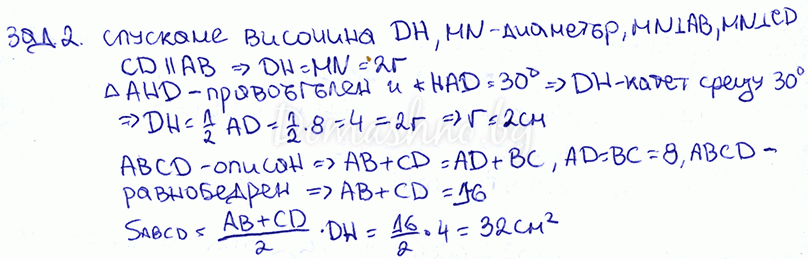 Зад.2. Спускаме височина DH, MN-диаметър, MN⊥AB, MN⊥CD
CD || AB ⇒ DH = MN = 2r
△ AHD - правоъгълен и ∢HAD = 30° ⇒ DH-катет срещу 30°
⇒ DH = 1/2 AD = 1/2 . 8 = 4 = 2r ⇒ r = 2cm
ABCD - описан ⇒ AB + CD = AD + BC, AD = BC = 8, ABCD -
равнобедрен ⇒ AB + CD = 16
S_ABCD = (AB + CD)/2 . DH = 16/2 . 4 = 32 cm²